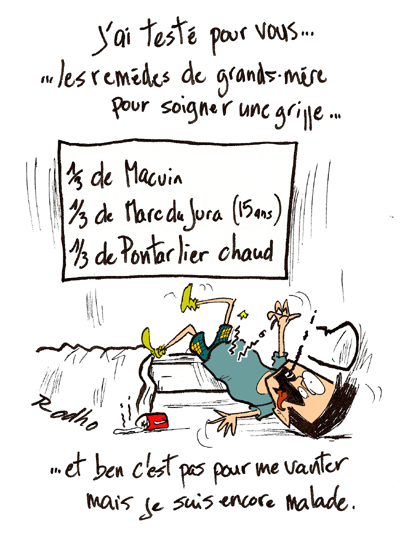 J'ai testé pour vous...
...les remèdes de grands-mère
pour soigner une grippe...
1/3 de Macvin
1/3 de Marc du Jura (15 ans)
1/3 de Pontarlier chaud
Rodho
...et ben c'est pas pour me vanter
mais je suis encore malade.